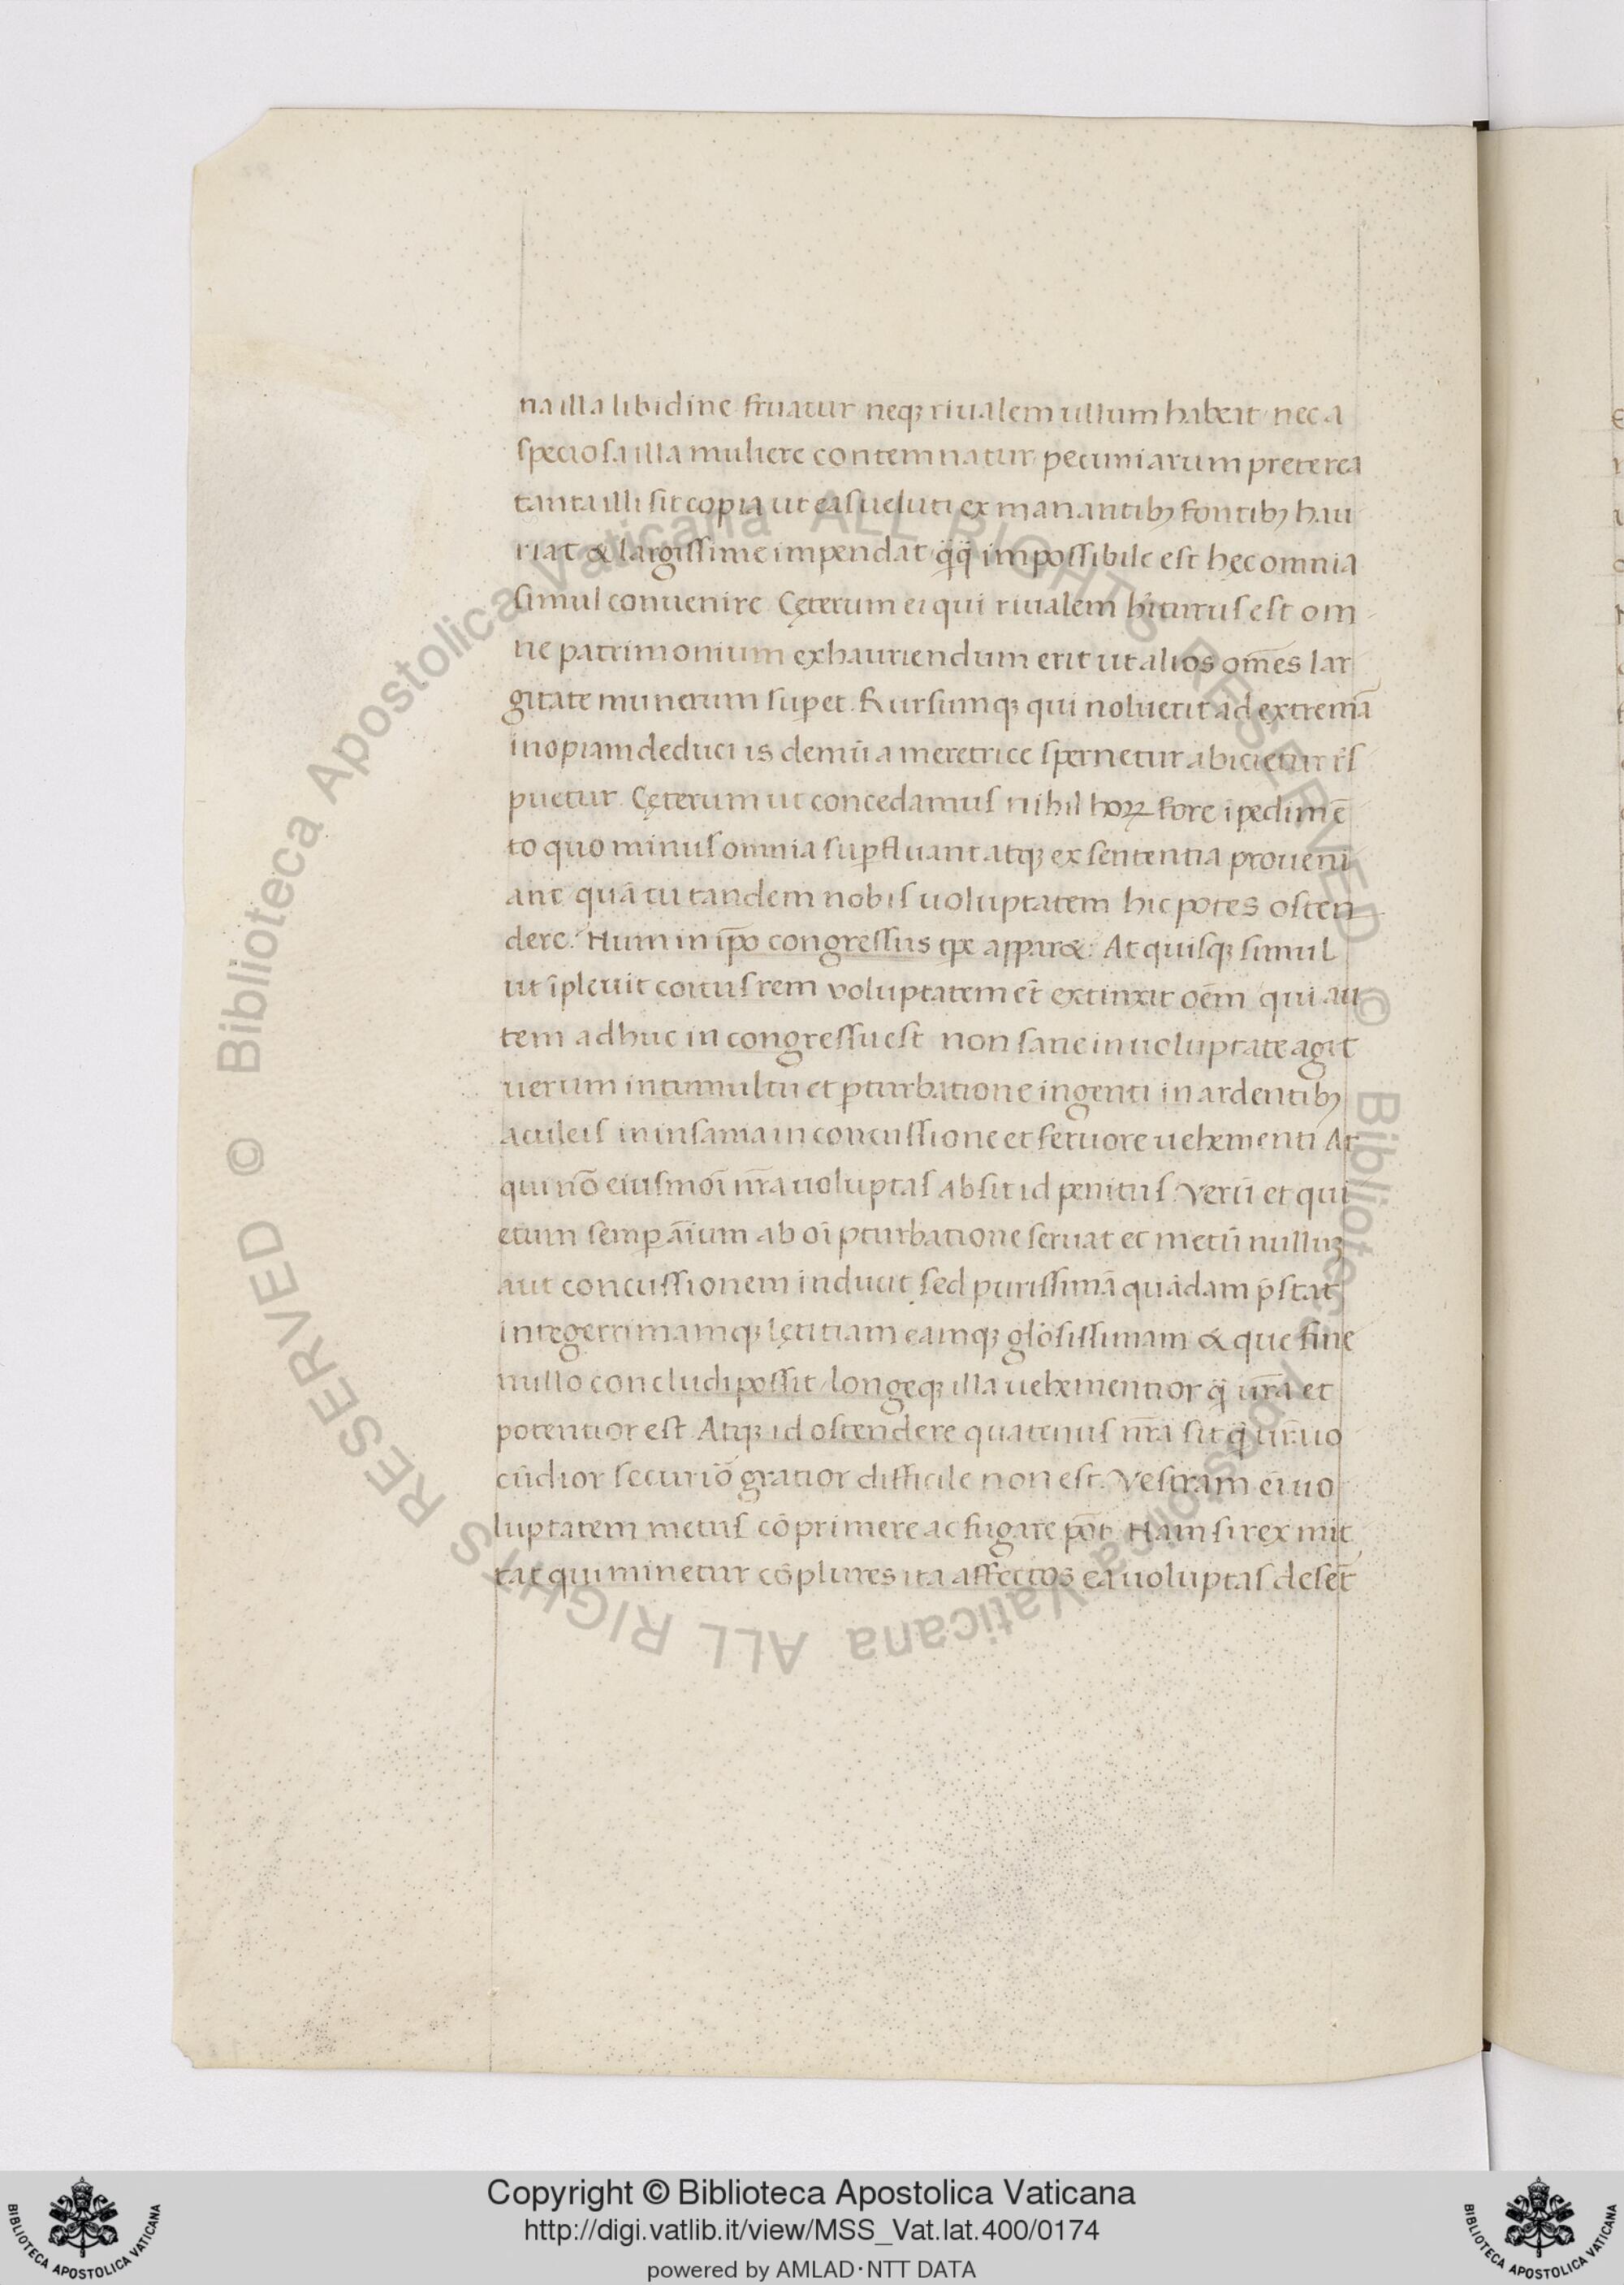 na illa libidine fruatur neq; riualem ullum habeat nec a
speciosa illa muliere contemnatur pecuniarum preterea
tanta illi sit copia ut eas ueluti ex manantib; fontib; hau
riat & largissime impendat q̃q̃ impossibile est hęc omnia
simul conuenire. Cęterum ei qui riualem h̃iturus est om
ne patrimonium exhauriendum erit ut alios om̃es lar
gitate munerum supet. Rursumq; qui noluerit ad extremã
inopiam deduci is demũ a meretrice spernetur abicietur rẽs
puetur. Cęterum ut concedamus nihil hoꝝ fore ĩpedimẽ
to quo minus omnia suꝑfluant atq; ex sententia proueni
ant quã tu tandem nobis uoluptatem hic potes osten
dere. Num in ip̃o congressus tpe apparet? At quisq; simul
ut ĩpleuit coitus rem voluptatem et̃ extinxit oẽm qui au
tem adhuc in congressu est non sane in uoluptate agit
uerum in tumultu et ꝑturbatione ingenti in ardentib;
aculeis in insania in concussione et feruore uehementi At
qui nõ eiusmoĩ nr̃a uoluptas absit id penitus. Verũ et qui
etum semꝑ aĩum ab oĩ ꝑturbatione seruat et metũ nulluꝫ
aut concussionem inducit sed purissimã quãdam p̃stat
integerrimamq; lętitiam eamq; glõsissimam & que fine
nullo concludi possit longeq; illa uehementior q̃ ur̃a et
potentior est. Atq; id ostendere quatenus nr̃a sit q̃ ur̃a iuo
cũdior securiõ gratior difficile non est. Vestram eĩ uo
luptatem metus cõprimere ac fugare põt Nam si rex mit
tat qui minetur cõplures ita affectos ea uoluptas deser̃
Copyright © Biblioteca Apostolica Vaticana
http://digi.vatlib.it/view/MSS_Vat.lat.400/0174
powered by AMLAD·NTT DATA
BIBLIOTECA APOSTOLICA VATICANA
BIBLIOTECA APOSTOLICA VATICANA
© Biblioteca Apostolica Vaticana ALL RIGHTS RESERVED
© Biblioteca Apostolica Vaticana ALL RIGHTS RESERVED